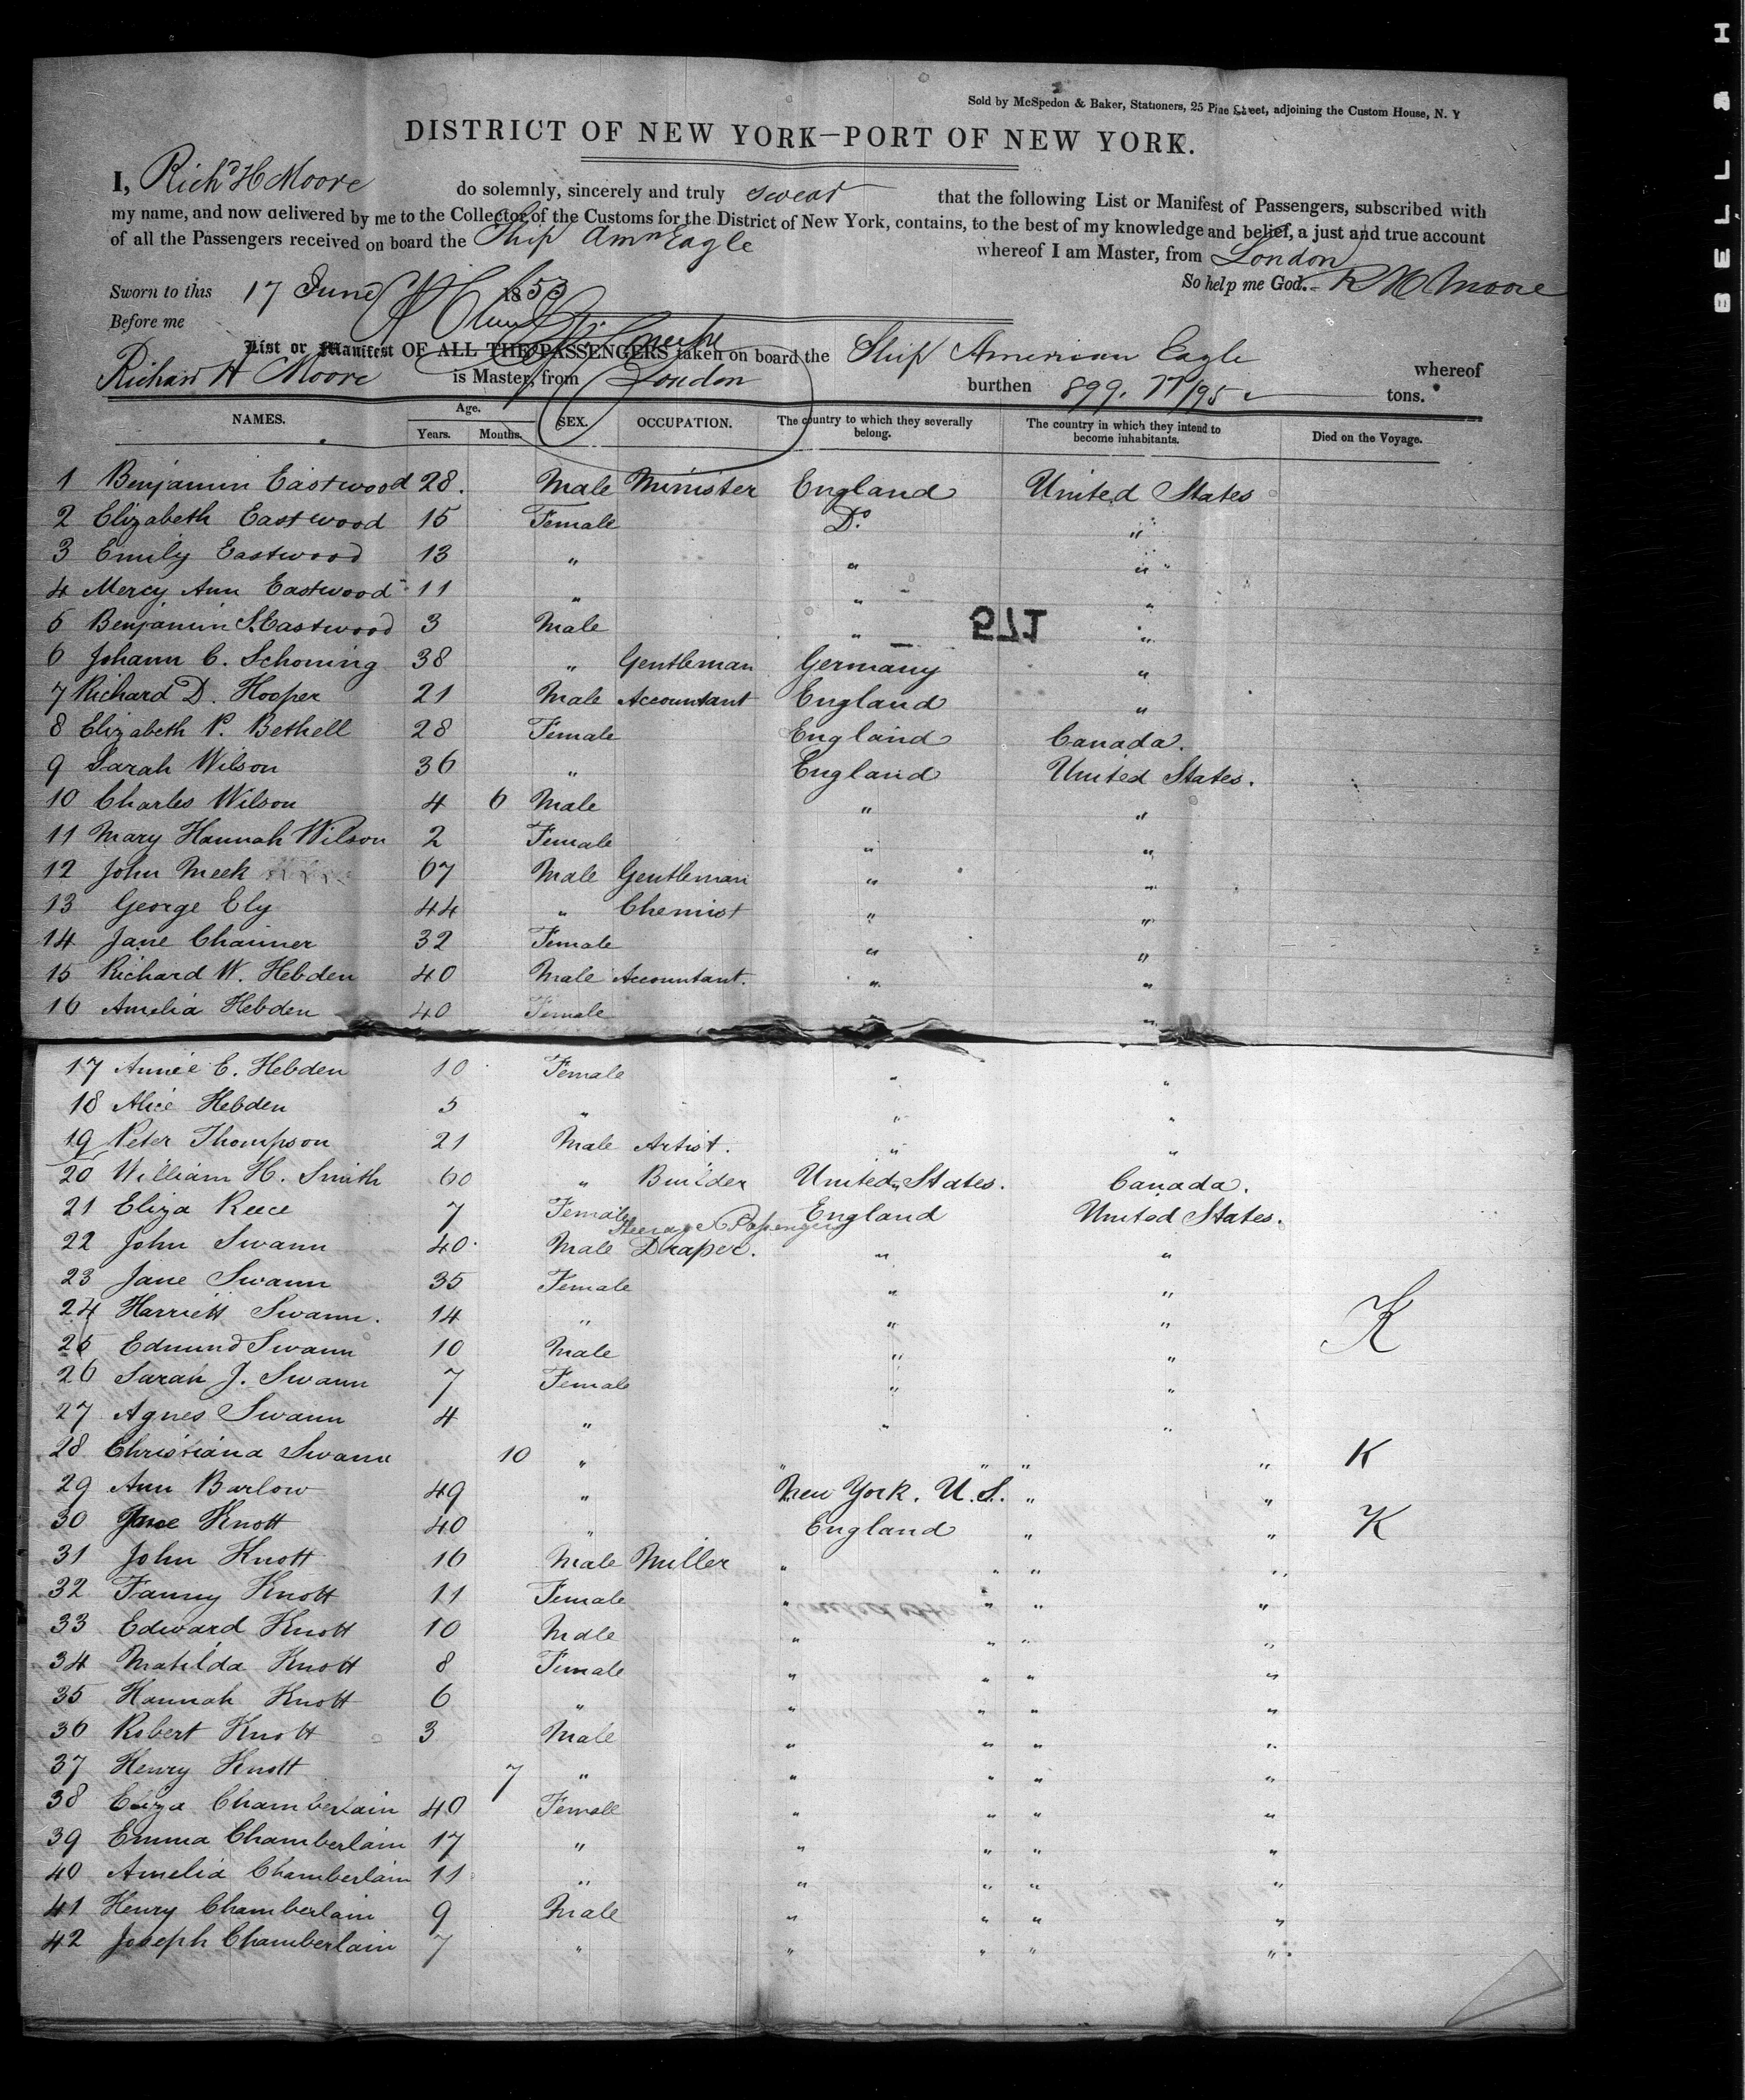 Sold by McSpedon & Baker, Stationers, 25 Pine Street, adjoining the Custom House, N. Y
DISTRICT OF NEW YORK—PORT OF NEW YORK.
I, Richd H Moore do solemnly, sincerely and truly swear that the following List or Manifest of Passengers, subscribed with
my name, and now delivered by me to the Collector of the Customs for the District of New York, contains, to the best of my knowledge and belief, a just and true account
of all the Passengers received on board the Ship Amn Eagle whereof I am Master, from London
So help me God. R H Moore
Sworn to this 17 June 1853
Before me
List or Manifest OF ALL THE PASSENGERS taken on board the Ship American Eagle whereof
Richard H Moore is Master, from London burthen 899. 77/95 tons.
NAMES. Age. Years. Months. SEX. OCCUPATION. The country to which they severally belong. The country in which they intend to become inhabitants. Died on the Voyage.
1 Benjamin Eastwood 28. Male Minister England United States
2 Elizabeth Eastwood 15 Female Do. "
3 Emily Eastwood 13 " " "
4 Mercy Ann Eastwood 11 " " "
5 Benjamin S. Eastwood 3 Male " "
171
6 Johann C. Schoning 38 " Gentleman Germany "
7 Richard D. Hooper 21 Male Accountant England "
8 Elizabeth P. Bethell 28 Female England Canada.
9 Sarah Wilson 36 " England United States.
10 Charles Wilson 4 6 Male " "
11 Mary Hannah Wilson 2 Female " "
12 John Meek 67 Male Gentleman " "
13 George Ely 44 " Chemist " "
14 Jane 32 Female " "
15 Richard W. Hebden 40 Male Accountant. " "
16 Amelia Hebden 40 Female "
17 Annie E. Hebden 10 Female " "
18 Alice Hebden 5 " " "
19 Peter Thompson 21 Male Artist. " "
20 William H. Smith 60 " Builder United States. Canada.
21 Eliza Reece 7 Female England United States.
Steerage Passengers
22 John Swann 40 Male Draper. " "
23 Jane Swann 35 Female " "
24 Harriett Swann. 14 " " " K
25 Edmund Swann 10 Male " "
26 Sarah J. Swann 7 Female " "
27 Agnes Swann 4 " " "
28 Christiana Swann 10 " " " " " K
29 Ann Barlow 49 " New York. U.S. " "
30 Jane Knott 40 " England " " K
31 John Knott 16 Male Miller " " " "
32 Fanny Knott 11 Female " " " "
33 Edward Knott 10 Male " " " "
34 Matilda Knott 8 Female " " " "
35 Hannah Knott 6 " " " " "
36 Robert Knott 3 Male " " " "
37 Henry Knott 7 " " " " "
38 Eliza Chamberlain 40 Female " " " "
39 Emma Chamberlain 17 " " " " "
40 Amelia Chamberlain 11 " " " " "
41 Henry Chamberlain 9 Male " " " "
42 Joseph Chamberlain 7 " " " " "
BELL & H